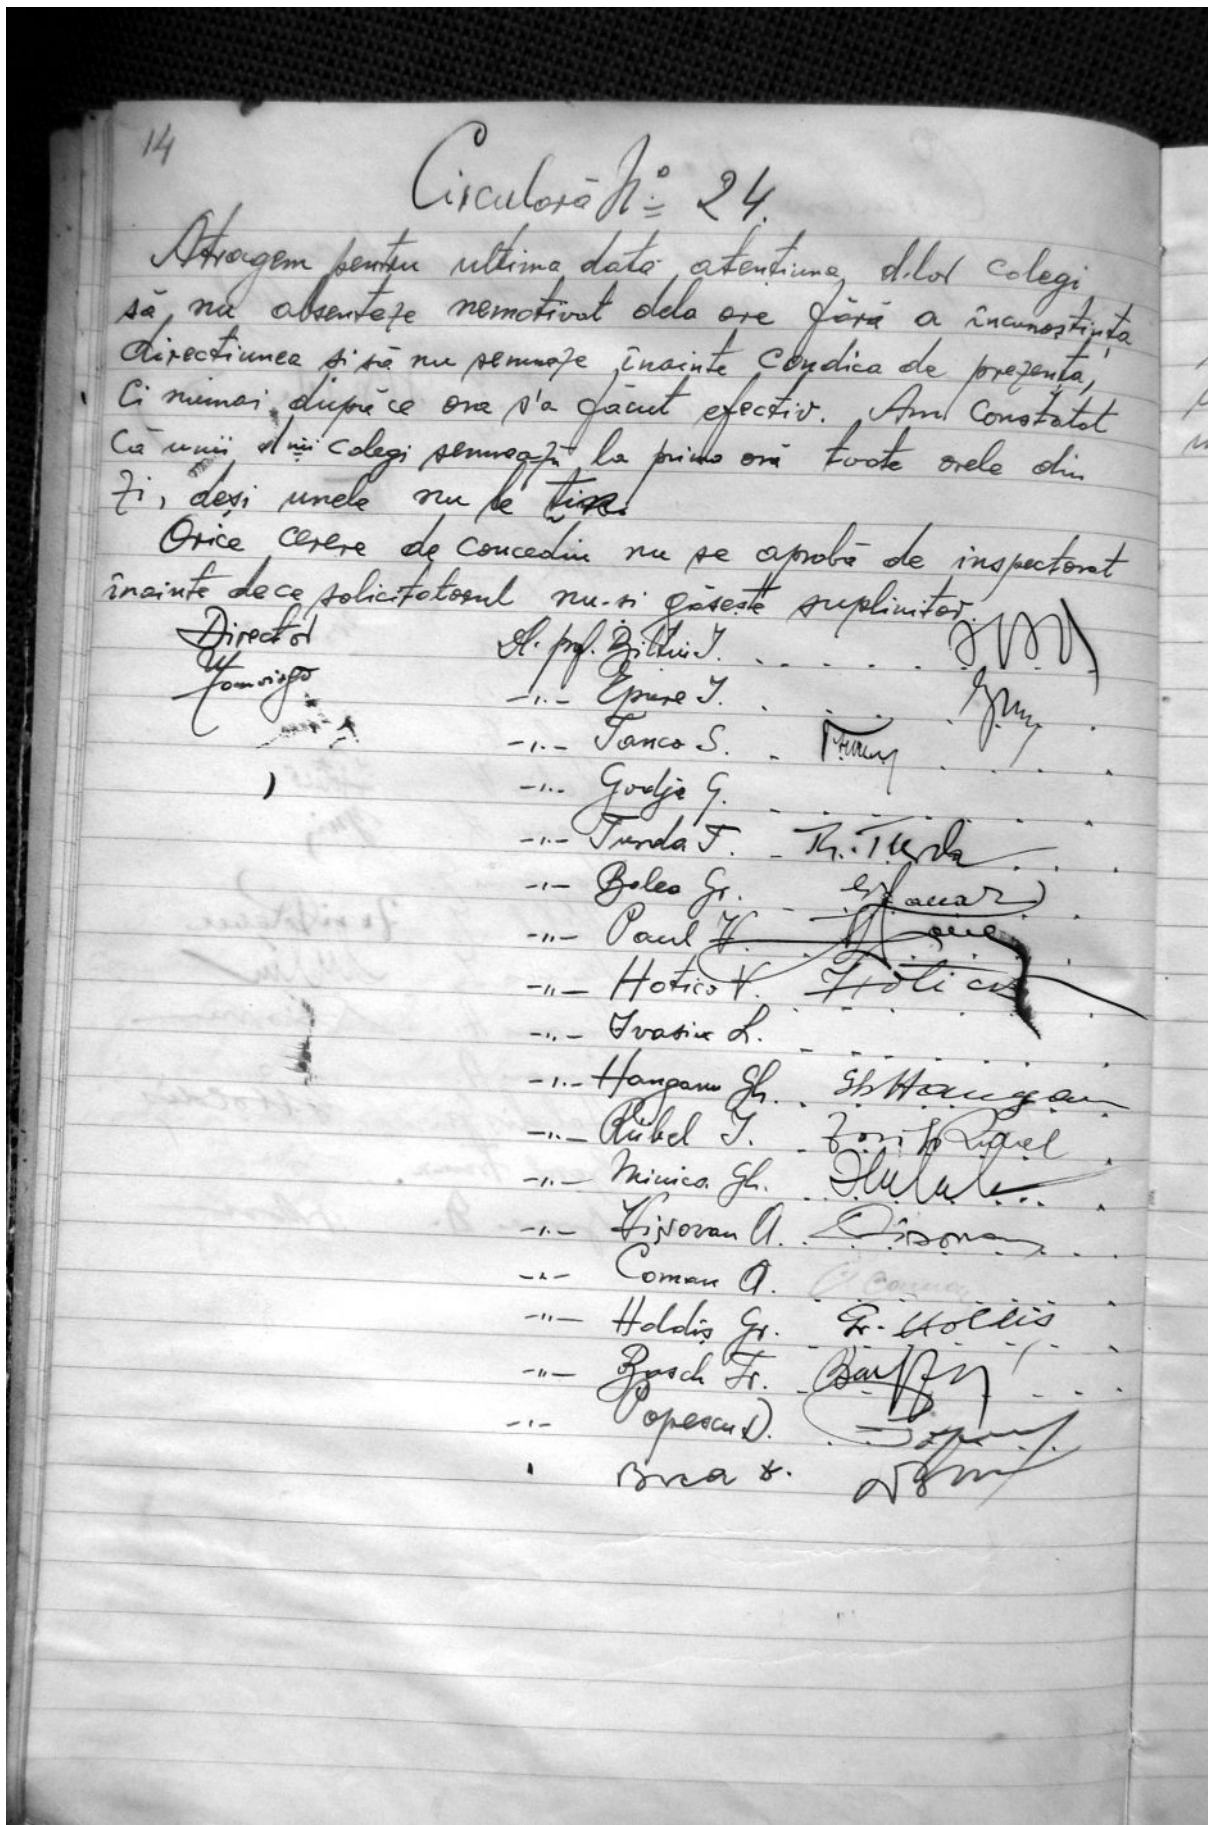 14
Circulară No 24.
Atragem pentru ultima dată atențiunea d-lor colegi
să nu absenteze nemotivat dela ore fără a încunoștiința
direcțiunea și să nu semneze înainte Condica de prezență,
Ci numai după ce ora s'a făcut efectiv. Am Constatat
Că unii dnii colegi semnează la prima oră toate orele din
zi, deși unele nu le țin.
Orice cerere de Concediu nu se aprobă de inspectorat
înainte dece solicitatorul nu-și găsește suplinitor.
Director
D. prof. Biltiu I.
-"- Epure I.
-"- Tanco S.
-"- Godja G.
-"- Turda T. Th. Turda
-"- Balea Gr.
-"- Paul V.
-"- Hotico V. Hotico
-"- Ivasiuc L.
-"- Hanganu Gh. Gh Hangan
-"- Rübel I.
-"- Minica Gh.
-"- Vișovan A. Vișovan
-"- Coman A. A Coman
-"- Holdiș Gr. Gr. Holdis
-"- Basch Fr.
-"- Popescu D.